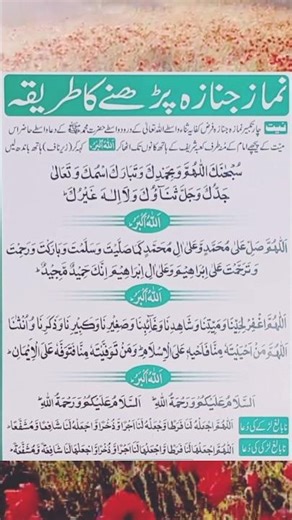 نماز جنازہ پڑھنے کا طریقہ
نیت چار تکبیر نماز جنازہ فرض کفایہ ثناء واسطے اللہ تعالیٰ کے درود واسطے حضرت محمد ﷺ کے دعا واسطے حاضر اس
میت کے پیچھے امام کے منہ طرف کعبہ شریف کے ہاتھ کانوں تک اٹھا کر اَللهُ اَکْبَرْ کہہ کر (زیر ناف) ہاتھ باندھ لیں
سُبْحٰنَكَ اللّٰهُمَّ وَبِحَمْدِكَ وَتَبَارَكَ اسْمُكَ وَتَعَالٰى
جَدُّكَ وَجَلَّ ثَنَاؤُكَ وَلَا اِلٰهَ غَيْرُكَ
اَللهُ اَکْبَرْ
اَللّٰهُمَّ صَلِّ عَلٰى مُحَمَّدٍ وَّعَلٰى اٰلِ مُحَمَّدٍ كَمَا صَلَّيْتَ وَسَلَّمْتَ وَبَارَكْتَ وَرَحِمْتَ
وَتَرَحَّمْتَ عَلٰى اِبْرَاهِيْمَ وَعَلٰى اٰلِ اِبْرَاهِيْمَ اِنَّكَ حَمِيْدٌ مَّجِيْدٌ
اَللهُ اَکْبَرْ
اَللّٰهُمَّ اغْفِرْ لِحَيِّنَا وَمَيِّتِنَا وَشَاهِدِنَا وَغَائِبِنَا وَصَغِيْرِنَا وَكَبِيْرِنَا وَذَكَرِنَا وَاُنْثَانَا
اَللّٰهُمَّ مَنْ اَحْيَيْتَهٗ مِنَّا فَاَحْيِهٖ عَلَى الْاِسْلَامِ وَمَنْ تَوَفَّيْتَهٗ مِنَّا فَتَوَفَّهٗ عَلَى الْاِيْمَانِ
اَللهُ اَکْبَرْ
اَلسَّلَامُ عَلَيْكُمْ وَرَحْمَةُ اللهِ اَلسَّلَامُ عَلَيْكُمْ وَرَحْمَةُ اللهِ
نابالغ لڑکے کی دُعا اَللّٰهُمَّ اجْعَلْهُ لَنَا فَرَطًا وَّاجْعَلْهُ لَنَا اَجْرًا وَّذُخْرًا وَّاجْعَلْهُ لَنَا شَافِعًا وَّمُشَفَّعًا
نابالغ لڑکی کی دُعا اَللّٰهُمَّ اجْعَلْهَا لَنَا فَرَطًا وَّاجْعَلْهَا لَنَا اَجْرًا وَّذُخْرًا وَّاجْعَلْهَا لَنَا شَافِعَةً وَّمُشَفَّعَةً